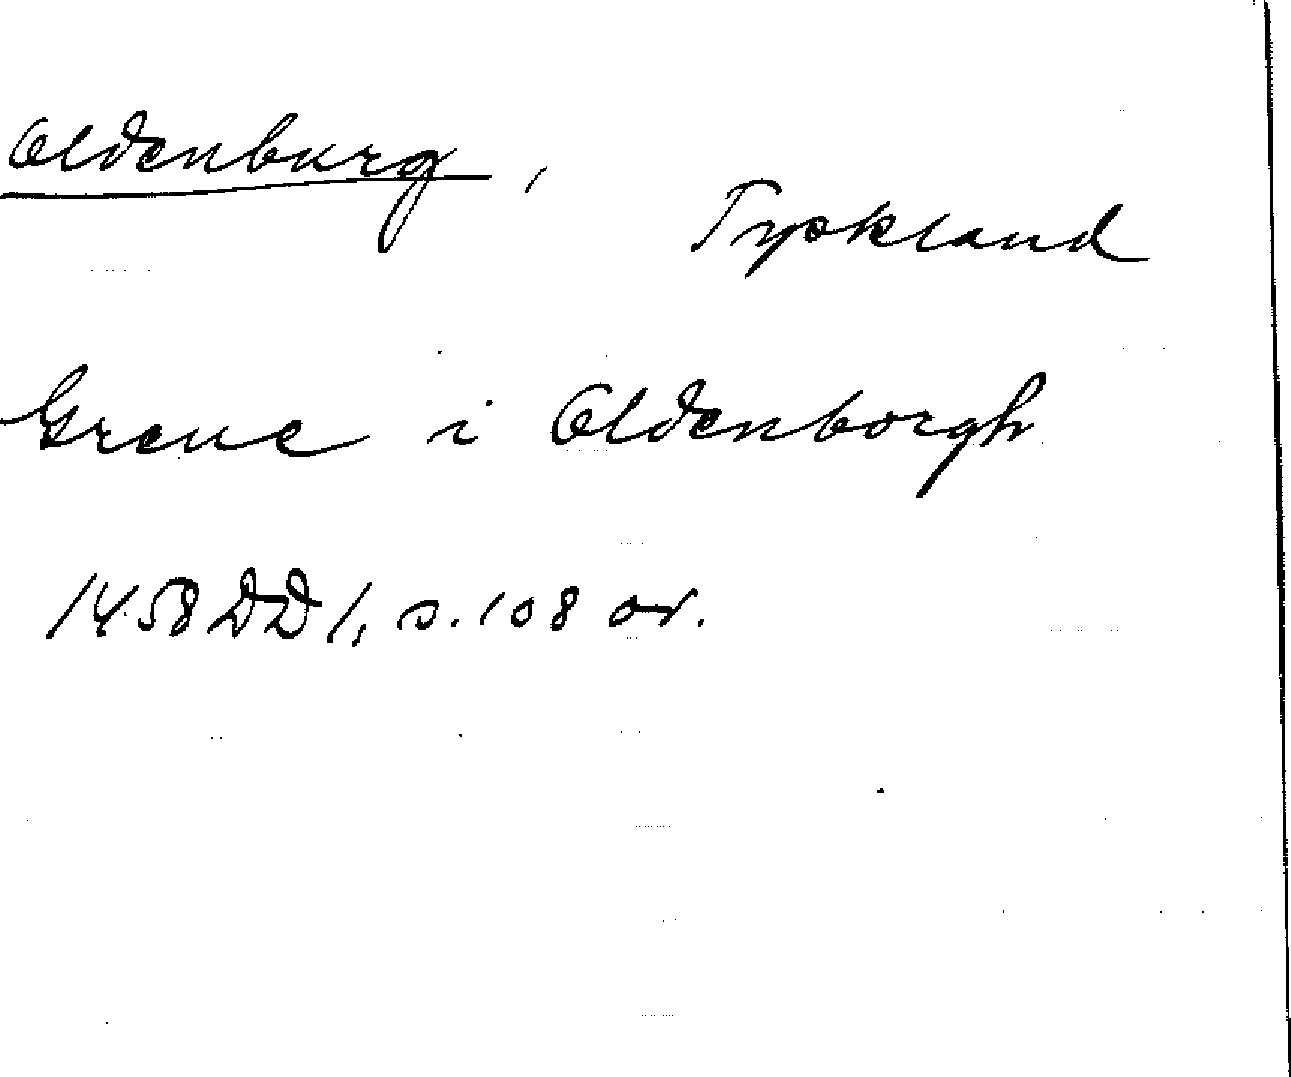 Oldenburg,
Tyskland
Greue i Oldenborgh
1458 DD 1, s. 108 or.